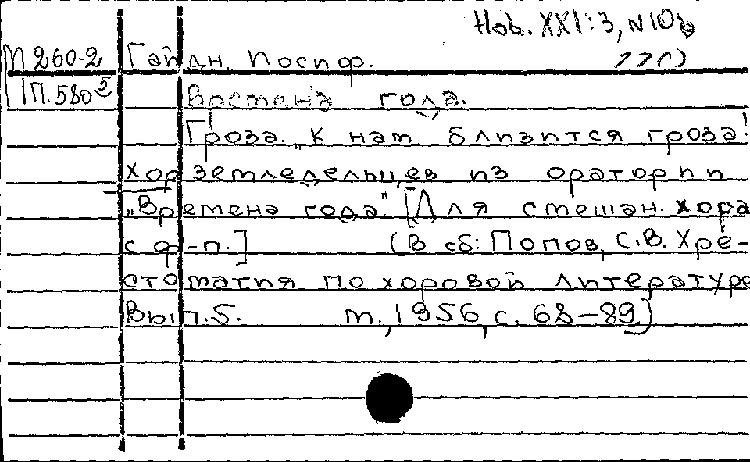 Hob. XXI:3, N 10b
М 260-2 Гайдн, Иосиф.
П.580⁵ Времена года.
Гроза. „К нам близится гроза!
Хор земледельцев из оратории
„Времена года". [Для смешан. хора
с ф-п.] (В сб: Попов, С.В. Хре-
стоматия по хоровой литературе
Вып.5. М., 1956, с. 68-89)